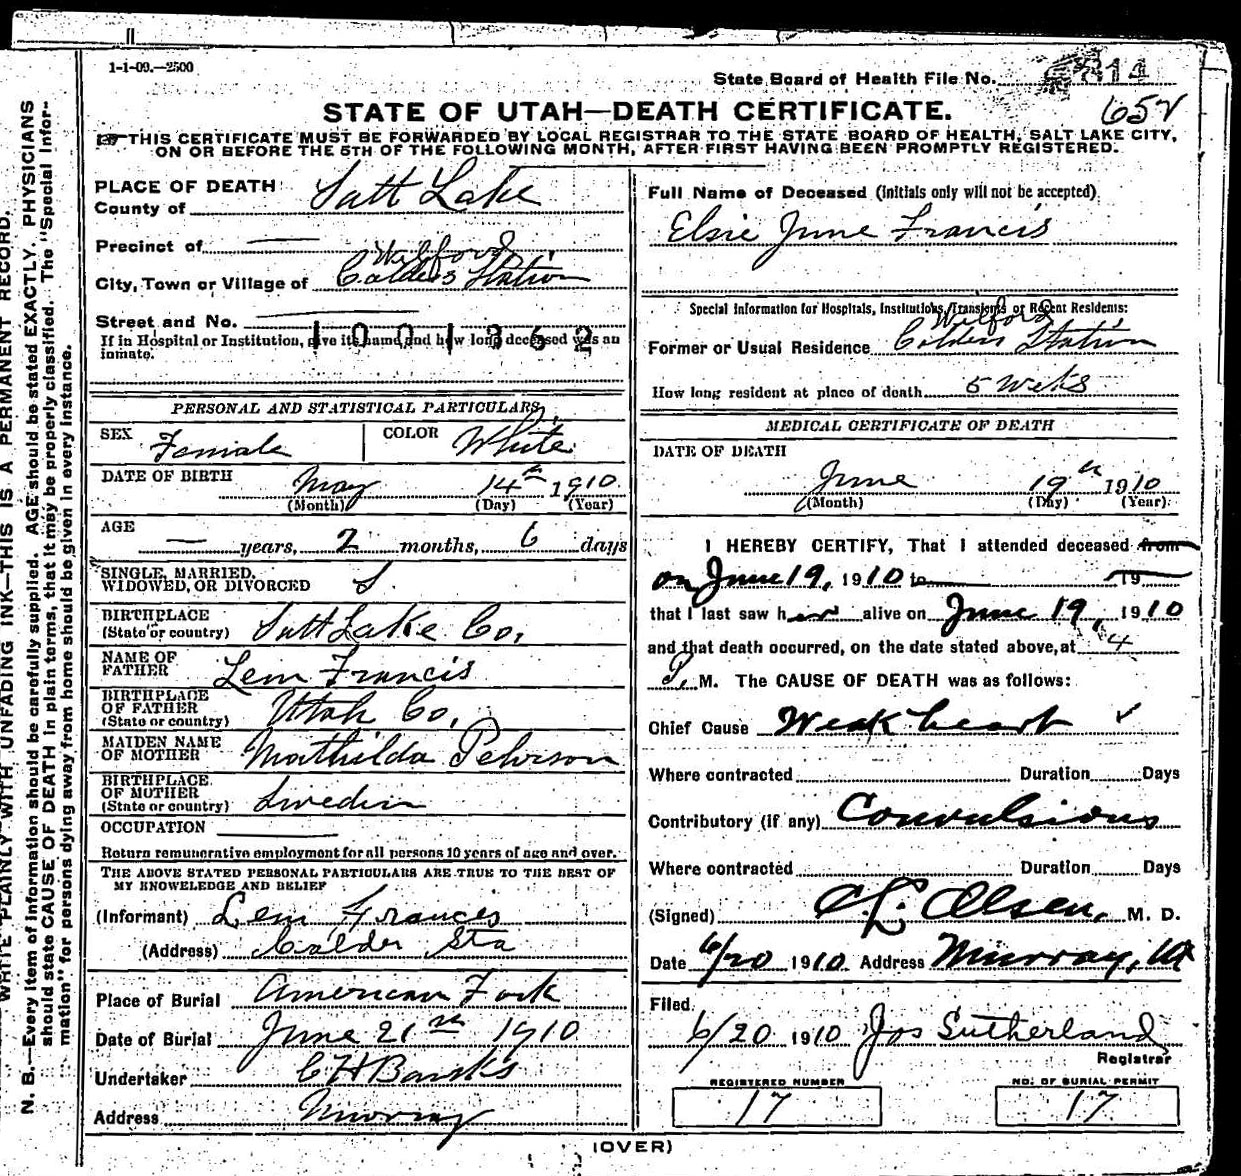 1-1-09.—2500
State Board of Health File No. 814
652
STATE OF UTAH—DEATH CERTIFICATE.
THIS CERTIFICATE MUST BE FORWARDED BY LOCAL REGISTRAR TO THE STATE BOARD OF HEALTH, SALT LAKE CITY,
ON OR BEFORE THE 5TH OF THE FOLLOWING MONTH, AFTER FIRST HAVING BEEN PROMPTLY REGISTERED.
WRITE PLAINLY WITH UNFADING INK—THIS IS A PERMANENT RECORD.
N. B.—Every item of information should be carefully supplied. AGE should be stated EXACTLY. PHYSICIANS
should state CAUSE OF DEATH in plain terms, that it may be properly classified. The "Special Infor-
mation" for persons dying away from home should be given in every instance.
PLACE OF DEATH
County of Salt Lake
Precinct of —
Wilford
City, Town or Village of Calders Station
Street and No. —
1001362
If in Hospital or Institution, give its name and how long deceased was an
inmate.
PERSONAL AND STATISTICAL PARTICULARS
SEX Female COLOR White
DATE OF BIRTH May 14th 1910
(Month) (Day) (Year)
AGE — years, 2 months, 6 days
SINGLE, MARRIED,
WIDOWED, OR DIVORCED S
BIRTHPLACE
(State or country) Salt Lake Co.
NAME OF
FATHER Lem Francis
BIRTHPLACE
OF FATHER
(State or country) Utah Co.
MAIDEN NAME
OF MOTHER Mathilda Pehrson
BIRTHPLACE
OF MOTHER
(State or country) Sweden
OCCUPATION —
Return remunerative employment for all persons 10 years of age and over.
THE ABOVE STATED PERSONAL PARTICULARS ARE TRUE TO THE BEST OF
MY KNOWLEDGE AND BELIEF
(Informant) Lem Frances
(Address) Calder Sta
Place of Burial American Fork
Date of Burial June 21st 1910
Undertaker C H Banks
Address Murray
Full Name of Deceased (Initials only will not be accepted)
Elsie June Francis
Special Information for Hospitals, Institutions, Transients or Recent Residents:
Wilford
Former or Usual Residence Calders Station
How long resident at place of death 5 Weks
MEDICAL CERTIFICATE OF DEATH
DATE OF DEATH
June 19th 1910
(Month) (Day) (Year)
I HEREBY CERTIFY, That I attended deceased from
on June 19, 1910 to 19
that I last saw her alive on June 19, 1910
and that death occurred, on the date stated above, at 4
P. M. The CAUSE OF DEATH was as follows:
Chief Cause Weak heart ✓
Where contracted Duration Days
Contributory (if any) Convulsions
Where contracted Duration Days
(Signed) C L Olsen, M. D.
Date 6/20 1910 Address Murray, Ut
Filed
6/20 1910 Jos Sutherland
Registrar
REGISTERED NUMBER
17
NO. OF BURIAL PERMIT
17
(OVER)